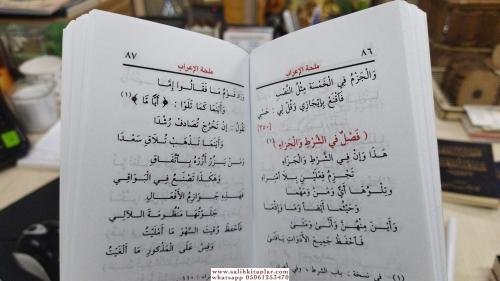 ٨٦
ملحة الإعراب
وَالْجَزْمُ فِي الْخَمْسَةِ مِثْلُ النَّصْبِ
فَاقْنَعْ بِإِيجَازِي وَقُلْ لِي: حَسْبِي
[٣٥٠]
(فَصْلٌ فِي الشَّرْطِ وَالْجَزَاءِ) (١)
هَذَا وَإِنْ فِي الشَّرْطِ وَالْجَزَاءِ
تَجْزِمُ فِعْلَيْنِ بِلَا امْتِرَاءِ
وَتِلْوُهَا أَيٌّ وَمَنْ وَمَهْمَا
وَحَيْثُمَا أَيْضًا وَمَا وَإِذْمَا
وَأَيْنَ مِنْهُنَّ وَأَنَّى وَمَتَى
فَاحْفَظْ جَمِيعَ الْأَدَوَاتِ يَا فَتَى
(١) في نسخة: باب الشرط
٨٧
ملحة الإعراب
وَزَادَ قَوْمٌ مَا فَقَالُوا إِمَّا
وَأَيْنَمَا كَمَا تَلَوْا: ﴿ أَيًّا مَّا ﴾ (١)
تَقُولُ: إِنْ تَخْرُجْ تُصَادِفْ رُشْدَا
وَأَيْنَمَا تَذْهَبْ تُلَاقِ سَعْدَا
وَمَنْ يَزُرْ أَزُرْهُ بِاتِّفَاقِ
وَهَكَذَا تَصْنَعُ فِي الْبَوَاقِي
فَهَذِهِ جَوَازِمُ الْأَفْعَالِ
جَلَوْتُهَا مَنْظُومَةَ اللَّآلِي
فَاحْفَظْ وُقِيتَ السَّهْوَ مَا أَمْلَيْتُ
وَقِسْ عَلَى الْمَذْكُورِ مَا أَلْغَيْتُ
www.salihkitaplar.com
whatsapp 05061253470